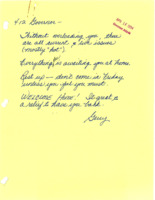 Governor -
Without overloading you, these
are all current & live issues
(mostly "hot").
Everything is awaiting you at home.
Rest up - don't come in Friday
unless you feel you must.
WELCOME HOME! It's great &
a relief to have you back.